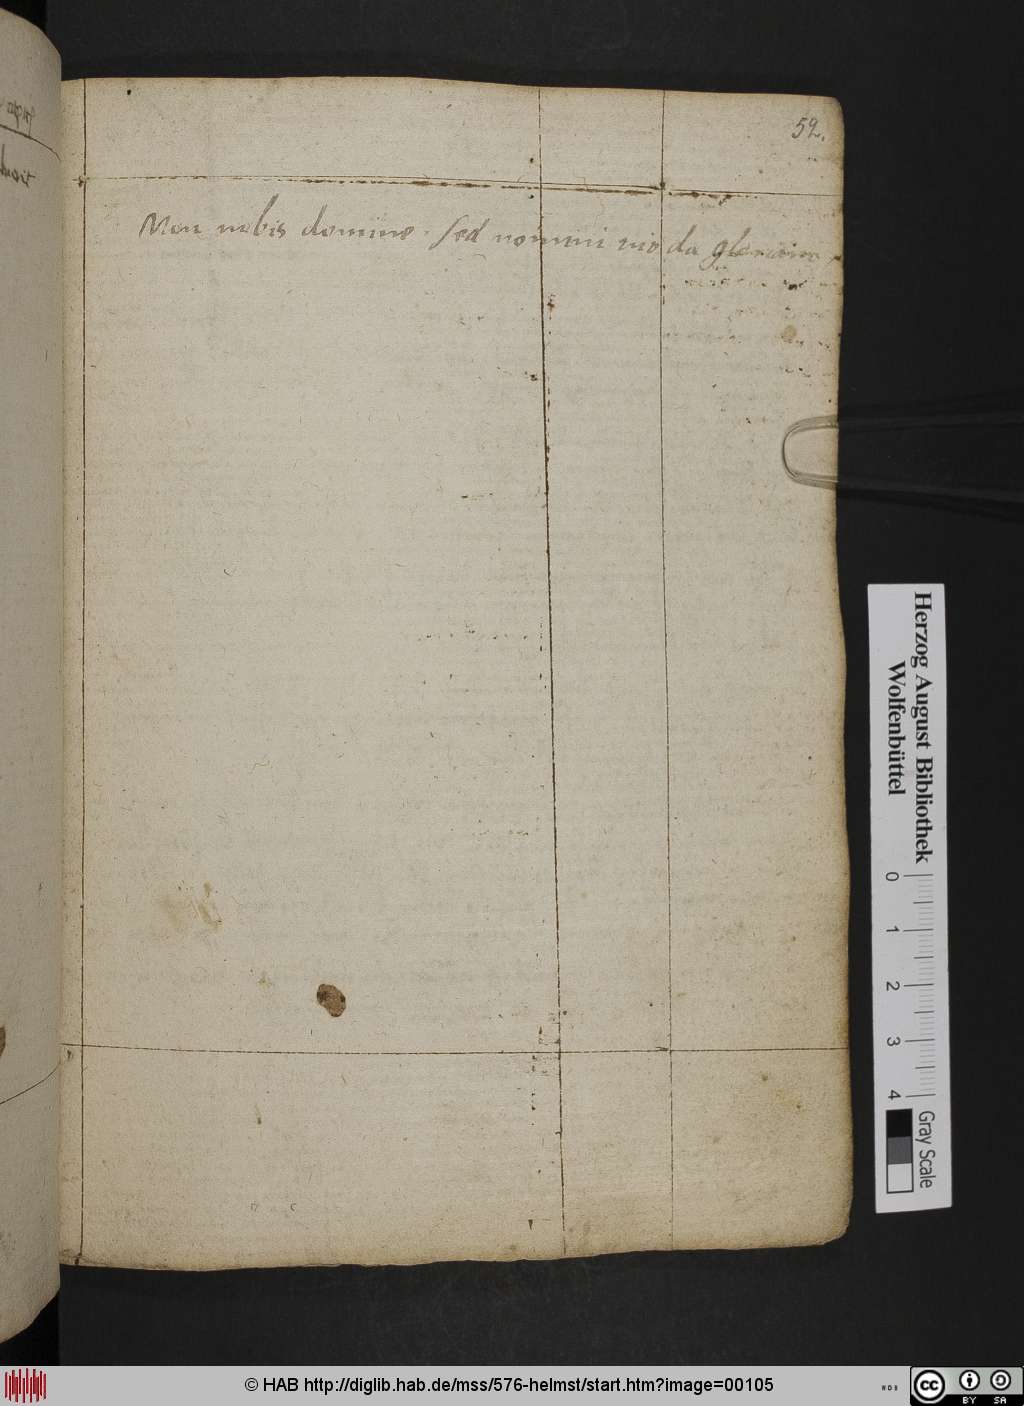 52.
Non nobis domine. sed nomini tuo da gloriam
Herzog August Bibliothek
Wolfenbüttel
0 1 2 3 4
Gray Scale
© HAB http://diglib.hab.de/mss/576-helmst/start.htm?image=00105
WDB
cc BY SA